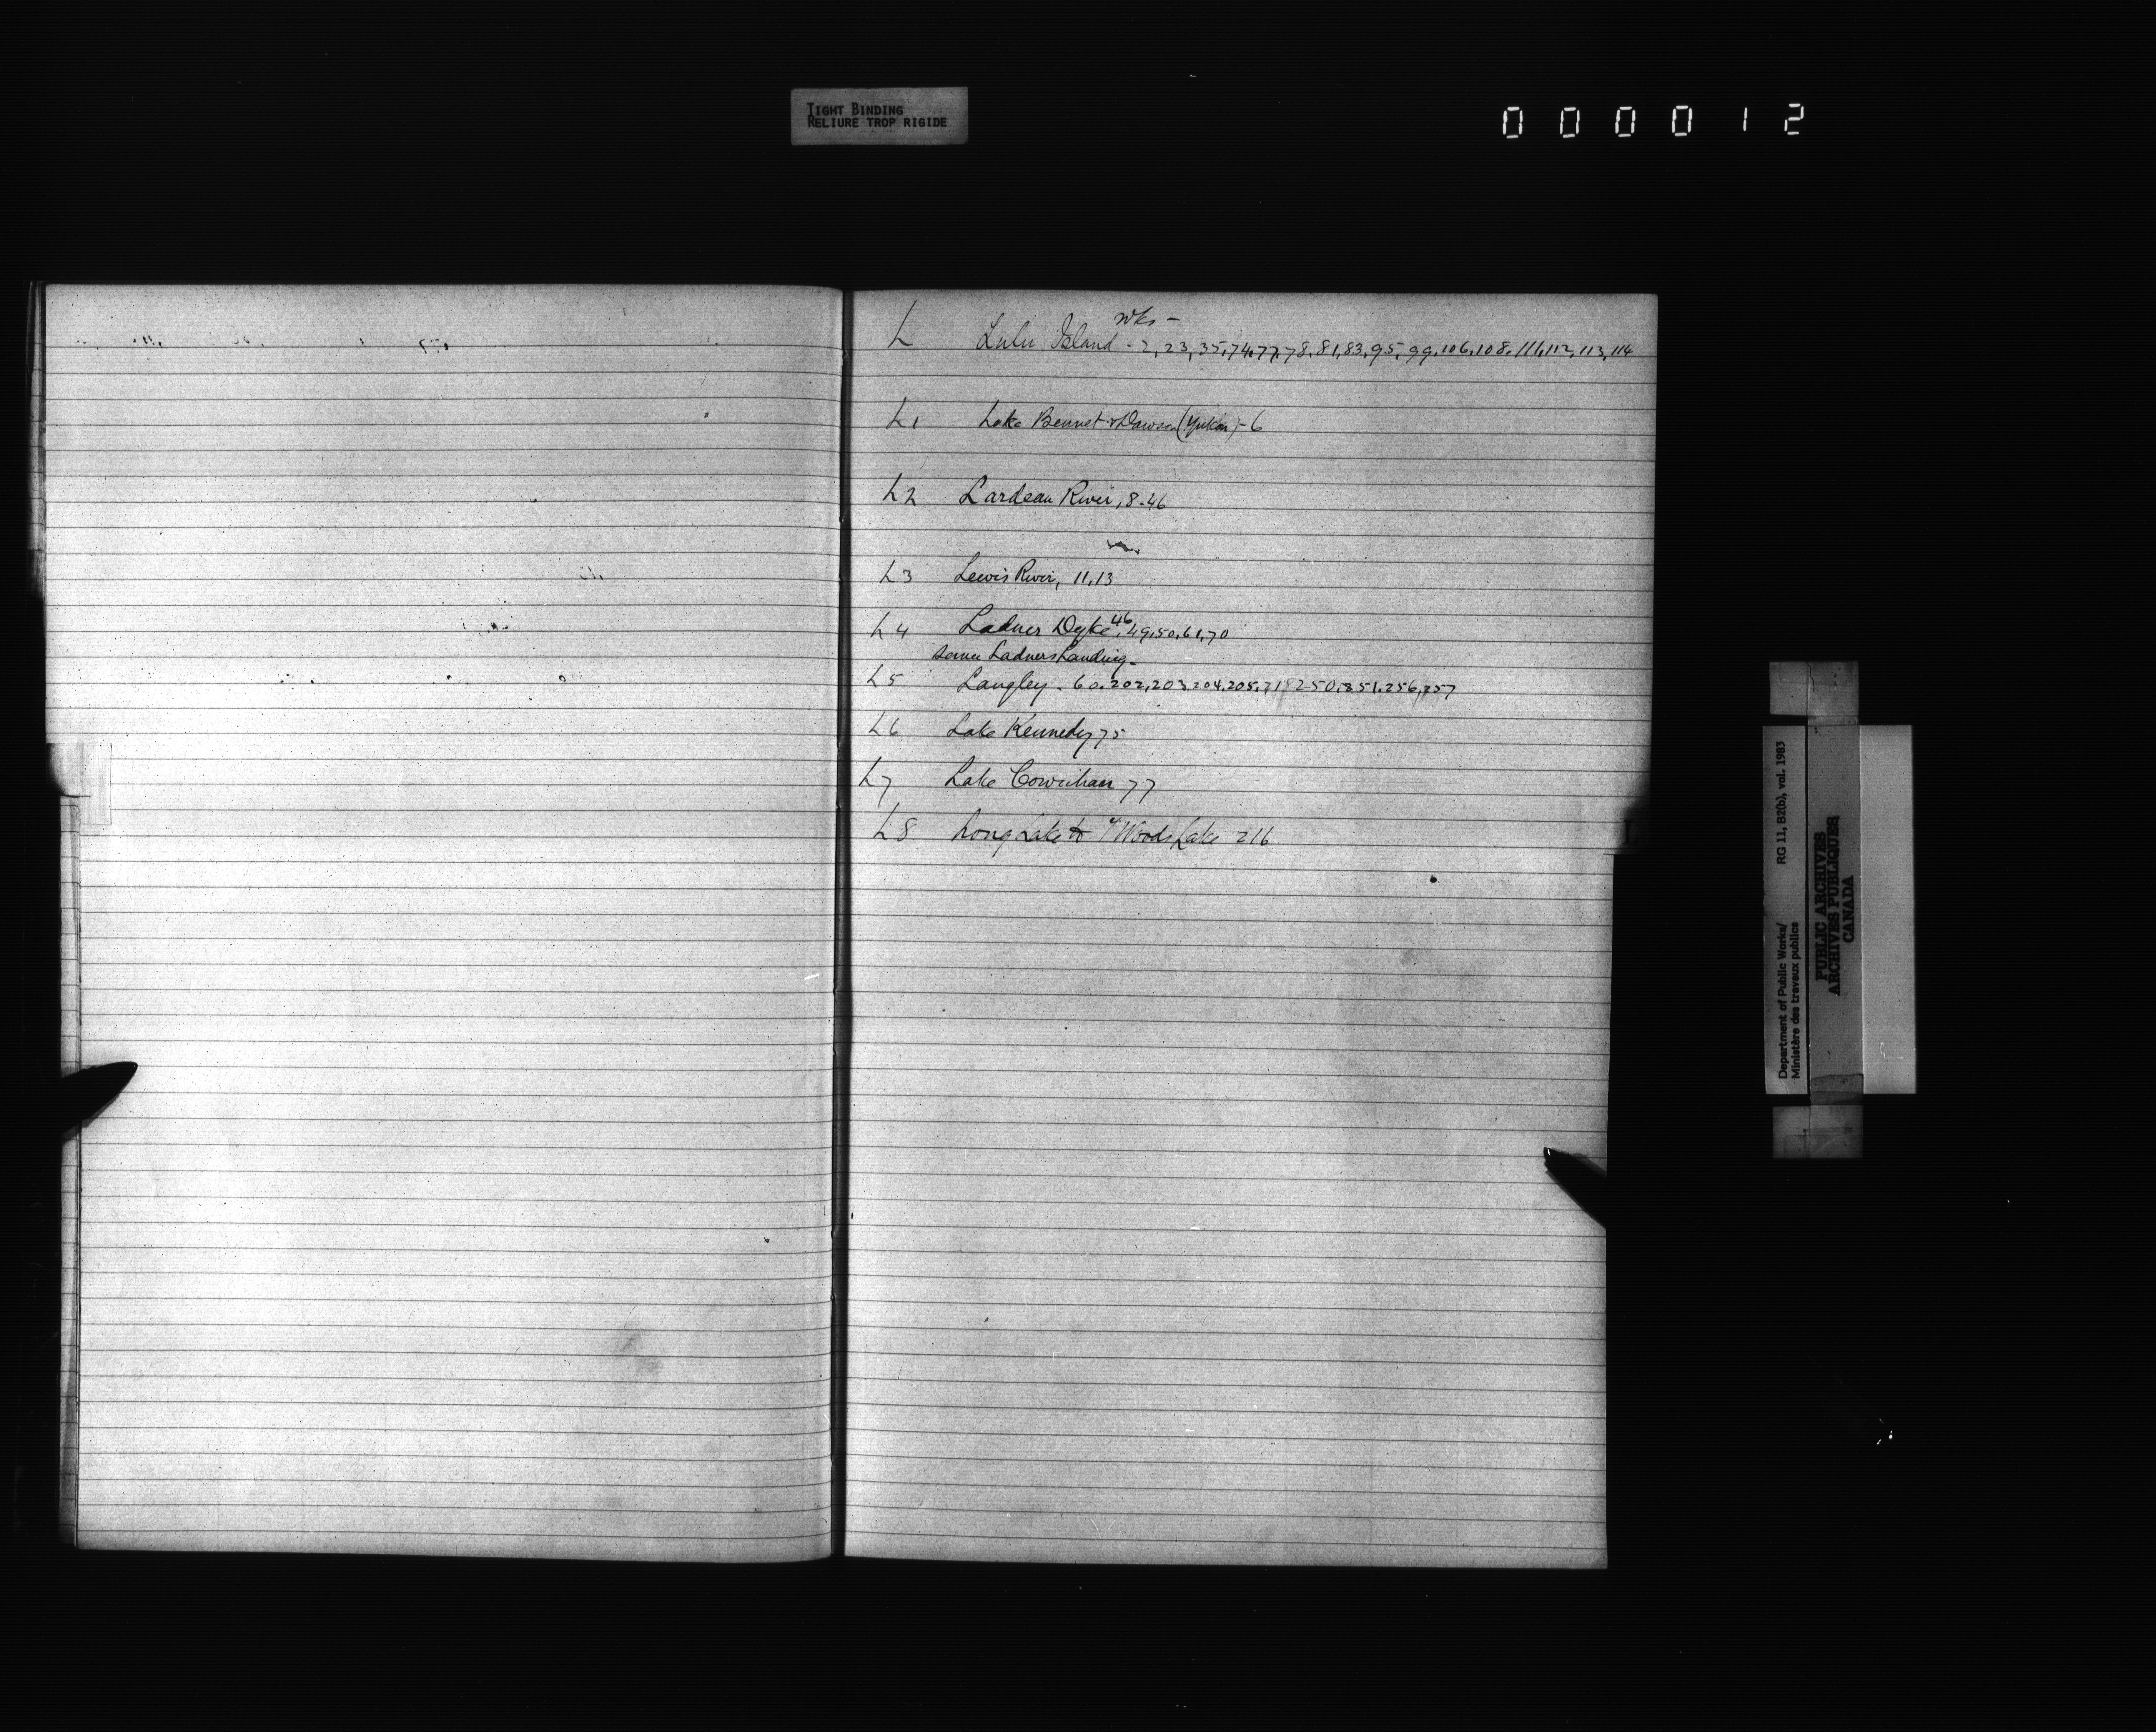 TIGHT BINDING
RELIURE TROP RIGIDE
000012
wks -
L Lulu Island - 2, 23, 35, 74, 77, 78, 81, 83, 95, 99, 106, 108, 111, 112, 113, 114
L1 Lake Bennet & Dawson (Yukon) - 6
L2 Lardeau River, 8-46
L3 Lewis River, 11, 13
L4 Ladner Dyke 46, 49, 50, 61, 70
Ladners Landing -
L5 Langley - 60, 202, 203, 204, 205, 250, 251, 256, 257
L6 Lake Kennedy 75
L7 Lake Cowichan 77
L8 Long Lake to Woods Lake 216
L
Department of Public Works/ RG 11, B2(b), vol. 1983
Ministère des travaux publics
PUBLIC ARCHIVES
ARCHIVES PUBLIQUES
CANADA